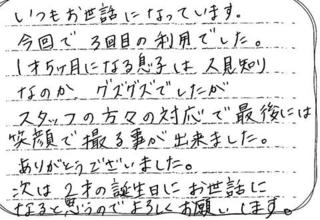 いつもお世話になっています。
今回で3回目の利用でした。
1才5ヶ月になる息子は人見知り
なのか、グズグズでしたが
スタッフの方々の対応で最後には
笑顔で撮る事が出来ました。
ありがとうございました。
次は2才の誕生日にお世話に
なると思うのでよろしくお願いします。